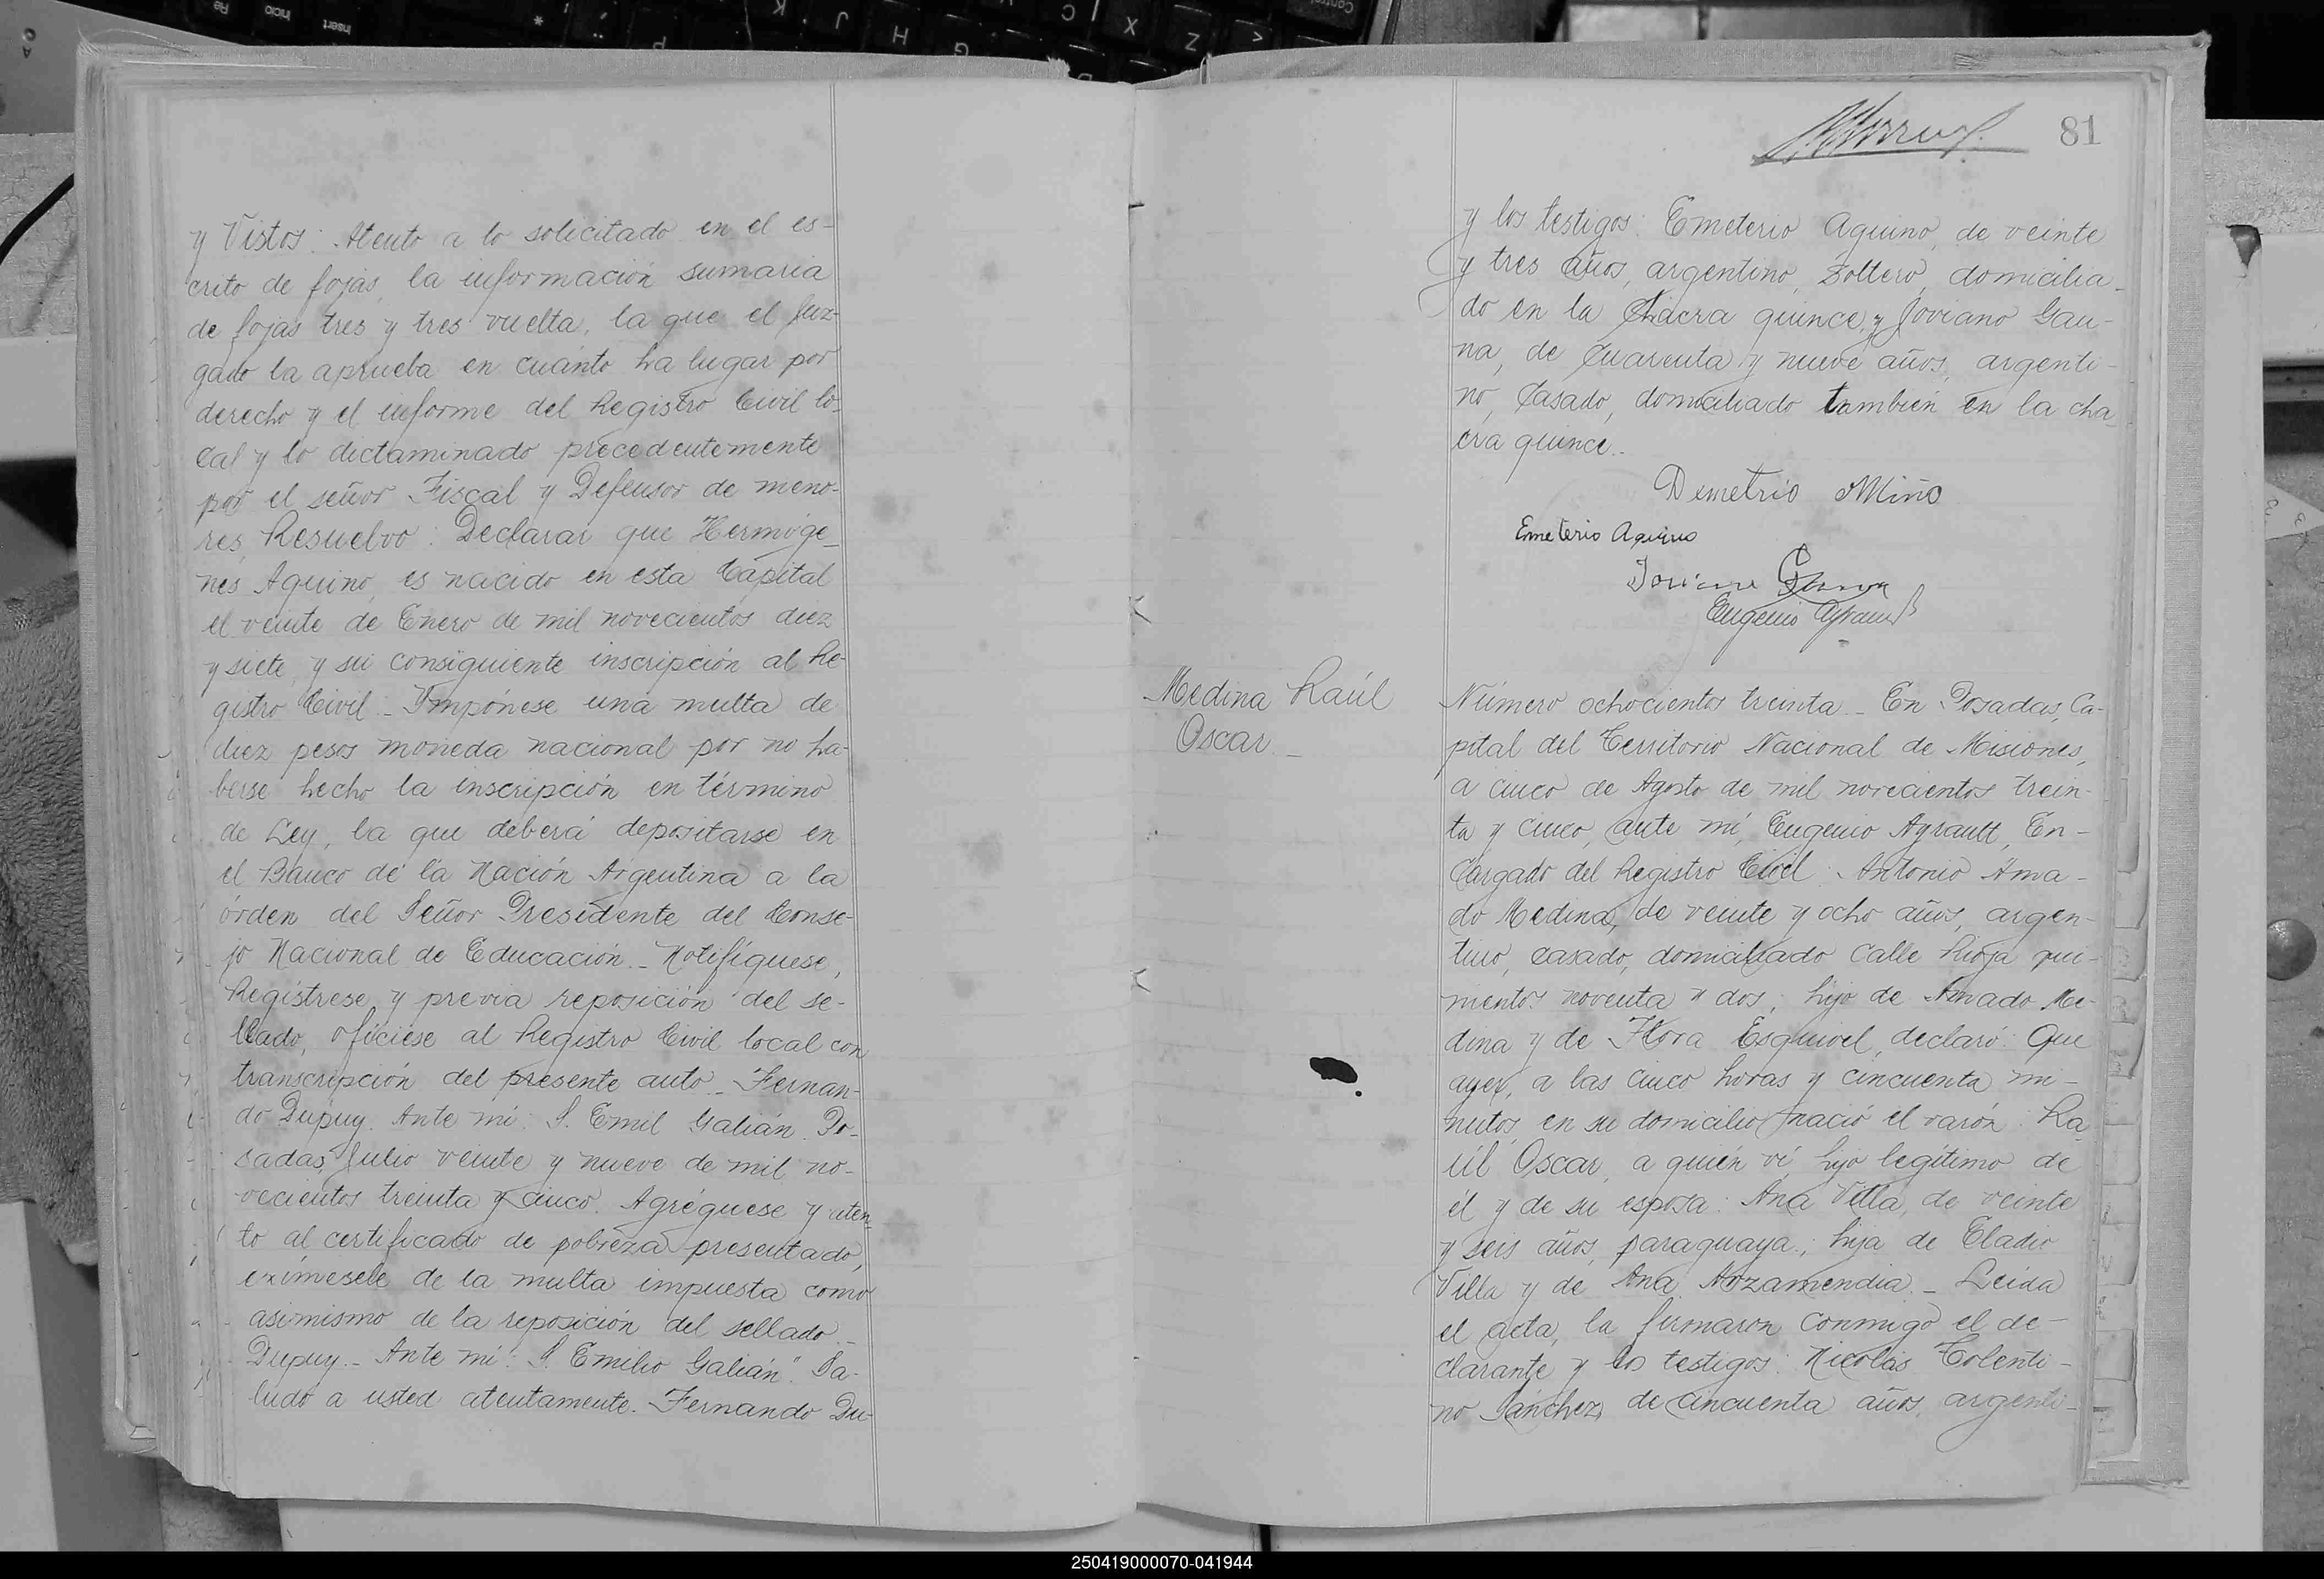 y Vistos: Atento a lo solicitado en el es-
crito de fojas, la información sumaria
de fojas tres y tres vuelta, la que el Juz-
gado la aprueba en cuanto ha lugar por
derecho y el informe del Registro Civil lo-
cal y lo dictaminado precedentemente
por el señor Fiscal y Defensor de meno-
res, Resuelvo: Declarar que Hermóge-
nes Aquino, es nacido en esta Capital
el veinte de Enero de mil novecientos diez
y siete, y su consiguiente inscripción al Re-
gistro Civil._ Impónese una multa de
diez pesos moneda nacional por no ha-
berse hecho la inscripción en término
de Ley, la que deberá depositarse en
el Banco de la Nación Argentina a la
órden del Señor Presidente del Conse-
jo Nacional de Educación._ Notifíquese,
Regístrese y previa reposición del se-
llado, ofíciese al Registro Civil local con
transcripción del presente auto._ Fernan-
do Dupuy. Ante mi: S. Emil Galián. Po-
sadas, Julio veinte y nueve de mil no-
vecientos treinta y cinco. Agréguese y aten-
to al certificado de pobreza presentado,
exímesele de la multa impuesta como
asimismo de la reposición del sellado._
Dupuy._ Ante mi: S. Emilio Galián". Sa-
ludo a usted atentamente. Fernando Du-
81
y los testigos: Emeterio Aquino, de veinte
y tres años, argentino, soltero, domicilia-
do en la Chacra quince, y Joviano Gau-
na, de cuarenta y nueve años, argenti-
no, casado, domiciliado también en la cha-
cra quince._
Demetrio Miño
Emeterio Aquino
Eugenio Ayrault
Medina Raúl
Oscar._
Número ochocientos treinta._ En Posadas, Ca-
pital del Territorio Nacional de Misiones,
a cinco de Agosto de mil novecientos trein-
ta y cinco, ante mí, Eugenio Ayrault, En-
cargado del Registro Civil: Antonio Ama-
do Medina, de veinte y ocho años, argen-
tino, casado, domiciliado calle Rioja qui-
nientos noventa y dos, hijo de Amado Me-
dina y de Flora Esquivel, declaró: Que
ayer, a las cinco horas y cincuenta mi-
nutos, en su domicilio, nació el varón: Ra-
úl Oscar, a quién ví, hijo legítimo de
él y de su esposa: Ana Villa, de veinte
y seis años, paraguaya, hija de Eladio
Villa y de Ana Arzamendia._ Leida
el acta, la firmaron conmigo el de-
clarante y los testigos: Nicolás Tolenti-
no Sánchez, de cincuenta años, argenti-
250419000070-041944